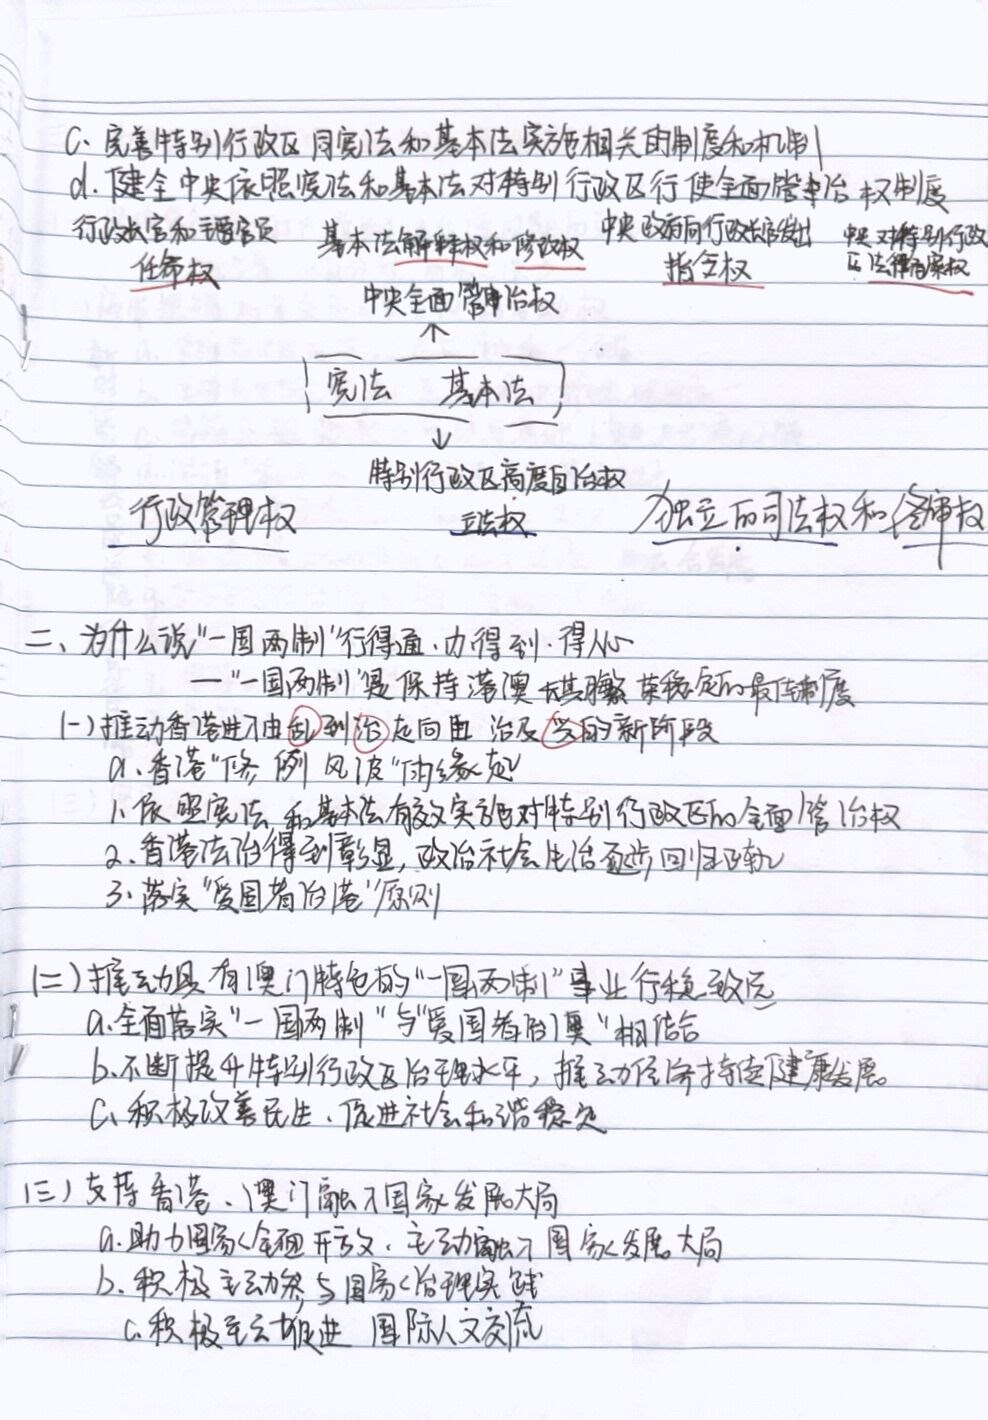 C. 完善特别行政区同宪法和基本法实施相关的制度和机制
d. 健全中央依照宪法和基本法对特别行政区行使全面管治权制度
行政长官和主要官员任命权
基本法解释权和修改权
中央政府向行政长官发出指令权
中央对特别行政区法律审查权
中央全面管治权
↑
宪法 基本法
↓
特别行政区高度自治权
行政管理权 立法权 独立的司法权和终审权
二、为什么说"一国两制"行得通、办得到、得人心
—"一国两制"是保持港澳长期繁荣稳定的最佳制度
(一)推动香港进入由乱到治走向由治及兴的新阶段
a. 香港"修例风波"的缘起
1. 依照宪法和基本法有效实施对特别行政区的全面管治权
2. 香港法治得到彰显,政治社会生活逐步回归正轨
3. 落实"爱国者治港"原则
(二)推动具有澳门特色的"一国两制"事业行稳致远
a. 全面落实"一国两制"与"爱国者治澳"相结合
b. 不断提升特别行政区治理水平,推动经济持续健康发展
C. 积极改善民生、促进社会和谐稳定
(三)支持香港、澳门融入国家发展大局
a. 助力国家全面开放、主动融入国家发展大局
b. 积极主动参与国家治理实践
c. 积极主动促进 国际人文交流